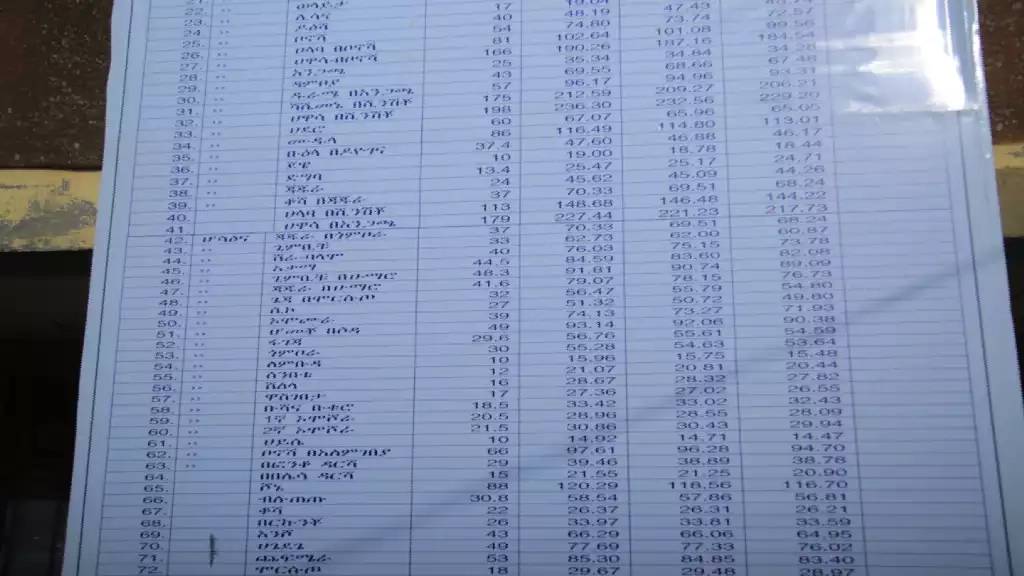 22. ,,
23. ,, ሌሳና 17 19.04
24. ,, ዶዕሻ 40 48.19 47.43
25. ,, ቦኖሻ 54 74.80 73.74 72.57
26. ,, ሀላባ በቦኖሻ 81 102.64 101.08 99.56
27. ,, ሀዋሳ-በቦኖሻ 166 190.26 187.16 184.54
28. ,, አንጋጫ 25 35.34 34.84 34.28
29. ,, ዳምቦያ 43 69.55 68.66 67.48
30. ,, ዱራሜ በአንጋጫ 57 96.17 94.96 93.31
31. ,, ሻሸመኔ በሺንሽቾ 175 212.59 209.27 206.21
32. ,, ሀዋሳ በሺንሽቾ 198 236.30 232.56 229.20
33. ,, ሀደሮ 60 67.07 65.96 65.05
34. ,, ሙዱላ 86 116.49 114.80 113.01
35. ,, በዶዮገና 37.4 47.60 46.88 46.17
36. ,, ጀዌ 10 19.00 18.78 18.44
37. ,, ድማባ 13.4 25.47 25.17 24.71
38. ,, ጃጁራ 24 45.62 45.09 44.26
39. ,, ቆሻ በጃጁራ 37 70.33 69.51 68.24
40. ሀላባ በሺንሽቾ 113 148.68 146.48 144.22
41. ሀዋሳ በአንጋጫ 179 227.44 221.23 217.73
42. ሆሳዕና ጃጁራ በጎምቦራ 37 70.33 69.51 68.24
43. ,, ጊምቢቹ 33 62.73 62.00 60.87
44. ,, ሸራ-ብላም 40 76.03 75.15 73.78
45. ,, አታማ 44.5 84.59 83.60 82.08
46. ,, ጊምቢቹ በሁማሮ 48.3 91.81 90.74 89.09
47. ,, ጃጁራ በሁማሮ 41.6 79.07 78.15 76.73
48. ,, ጌጃ በሞርሱጦ 32 56.47 55.79 54.80
49. ,, ሌኮ 27 51.32 50.72 49.80
50. ,, 39 74.13 73.27 71.93
51. ,, ሆመቾ በሶዳ 49 93.14 92.06 90.38
52. ,, 29.6 56.76 55.61 54.59
53. ,, ጎምቦራ 30 55.28 54.63 53.64
54. ,, ለምቡዳ 10 15.96 15.75 15.48
55. ,, ሰንበቴ 12 21.07 20.81 20.44
56. ,, ሸለላ 16 28.67 28.32 27.82
57. ,, ዋሰገበታ 17 27.36 27.02 26.55
58. ,, ቡሻና 18.5 33.42 33.02 32.43
59. ,, 1ኛ አሞሸራ 20.5 28.96 28.55 28.09
60. ,, 2ኛ አሞሸራ 21.5 30.86 30.43 29.94
61. ,, ሀይሴ 10 14.92 14.71 14.47
62. ,, ቦኖሻ በአለምገበያ 66 97.61 96.28 94.70
63. ,, በፎንቆ ዳርሻ 29 39.46 38.89 38.76
64. በበሌሳ ዳርሻ 15 21.55 21.25 20.90
65. ሾኔ 88 120.29 118.56 116.70
66. ብሉጠጡ 30.8 58.54 57.86 56.81
67. ቆሻ 22 26.37 26.31 26.21
68. በርኩንቾ 26 33.97 33.81 33.59
69. አንሾ 43 66.29 66.06 64.95
70. ሀጌደጌ 49 77.69 77.33 76.02
71. ጨፍሜራ 53 85.30 84.85 83.40
72. ሞርሱጦ 18 29.67 29.48 28.97